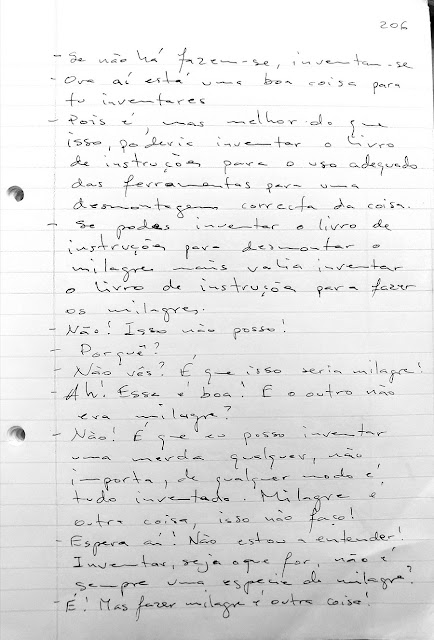 206
- Se não há fazem-se, inventam-se
- Ora aí está uma boa coisa para
tu inventares
- Pois é, mas melhor do que
isso, poderia inventar o livro
de instruções para o uso adequado
das ferramentas para uma
desmontagem correcta da coisa.
- Se podes inventar o livro de
instruções para desmontar o
milagre mais valia inventar
o livro de instruções para fazer
os milagres.
- Não! Isso não posso!
- Porquê?
- Não vês? É que isso seria milagre!
- Ah! Essa é boa! E o outro não
era milagre?
- Não! É que eu posso inventar
uma merda qualquer, não
importa, de qualquer modo é
tudo inventado. Milagre é
outra coisa, isso não faço!
- Espera aí! Não estou a entender!
Inventar, seja o que for, não é
sempre uma espécie de milagre?
- É! Mas fazer milagre é outra coisa!